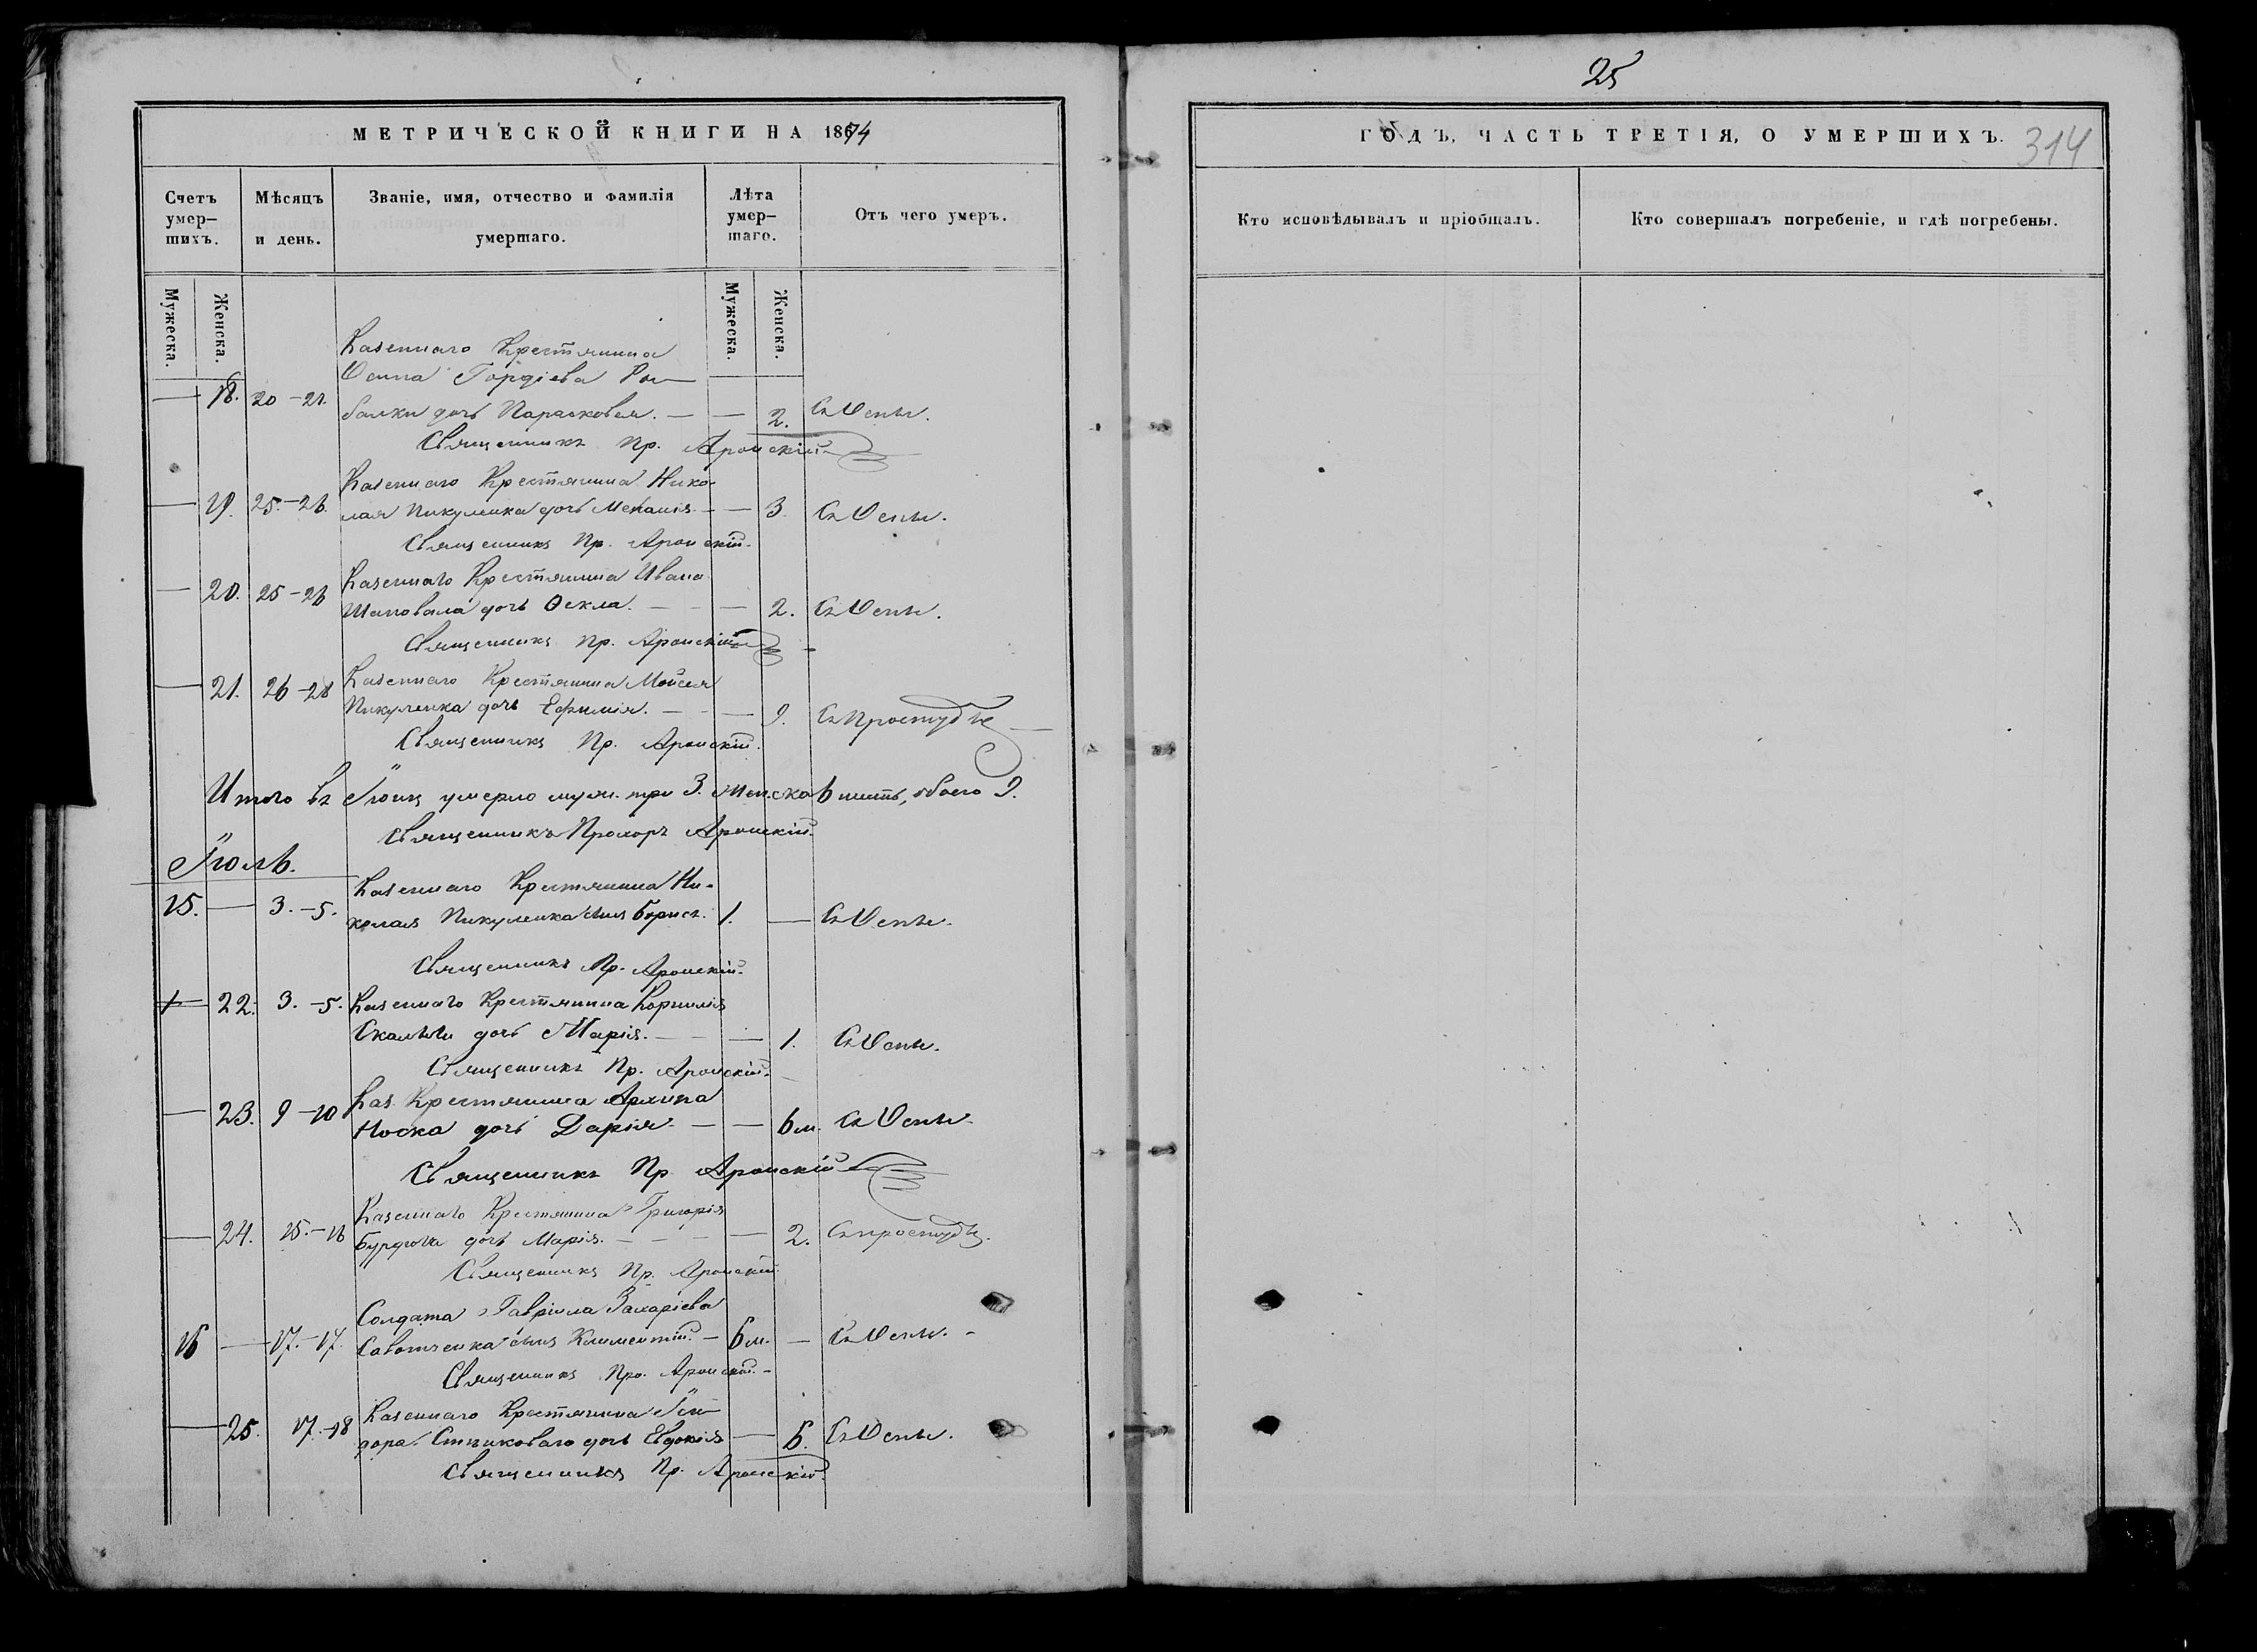 25
МЕТРИЧЕСКОЙ КНИГИ НА 1874
ГОДЪ, ЧАСТЬ ТРЕТІЯ, О УМЕРШИХЪ.
314
Счетъ умер-шихъ.
Мѣсяцъ и день.
Званіе, имя, отчество и фамилія умершаго.
Лѣта умер-шаго.
Отъ чего умеръ.
Кто исповѣдывалъ и пріобщалъ.
Кто совершалъ погребеніе, и гдѣ погребены.
Мужеска.
Женска.
Мужеска.
Женска.
Казеннаго Крестянина
Осипа Гордіева
— 18. 20-21. дочь Парасковея. — — 2. Съ Оспы.
Священникъ Пр. Аронскій
Казеннаго Крестянина Нико-
— 19. 25.-26. лая Пикуленка дочь Меланія. — — 3. Съ Оспы.
Священникъ Пр. Аронскій.
Казеннаго Крестянина Ивана
— 20. 25-26 Шаповала дочь Ѳекла. — — 2. Съ Оспы.
Священникъ Пр. Аронскій
Казеннаго Крестянина Мойсея
— 21. 26-28 Пикуленка дочь Ефимія. — — 9. Съ Простуды
Священникъ Пр. Аронскій.
Итого въ Іюнѣ умерло муж. три 3. женска 6 шесть, обоего 9.
Священникъ Прохоръ Аронскій.
Іюль.
Казеннаго Крестянина Ни-
15. — 3.-5. колая Пикуленка сынъ Борисъ. 1. — Съ Оспы.
Священникъ Пр. Аронскій.
— 22. 3.-5. Казеннаго Крестянина Корнилія
дочь Марія. — — 1. Съ Оспы.
Священникъ Пр. Аронскій.
Каз. Крестянина Архипа
— 23. 9-10 Носка дочь Дарія — — 6 м. Съ Оспы
Священникъ Пр Аронскій
Казеннаго Крестянина Григорія
— 24. 15.-16 дочь Марія. — — 2. Съ простуды.
Священникъ Пр. Аронскій
Солдата Гавріила Захаріева
16 — 17.-17. Савотченка сынъ Климентій. — 6 м. — Съ Оспы. -
Священникъ Про. Аронскій. -
Казеннаго Крестянина Іси-
— 25. 17.-18 дора дочь Евдокія — 6. Съ Оспы.
Священникъ Пр. Аронскій.